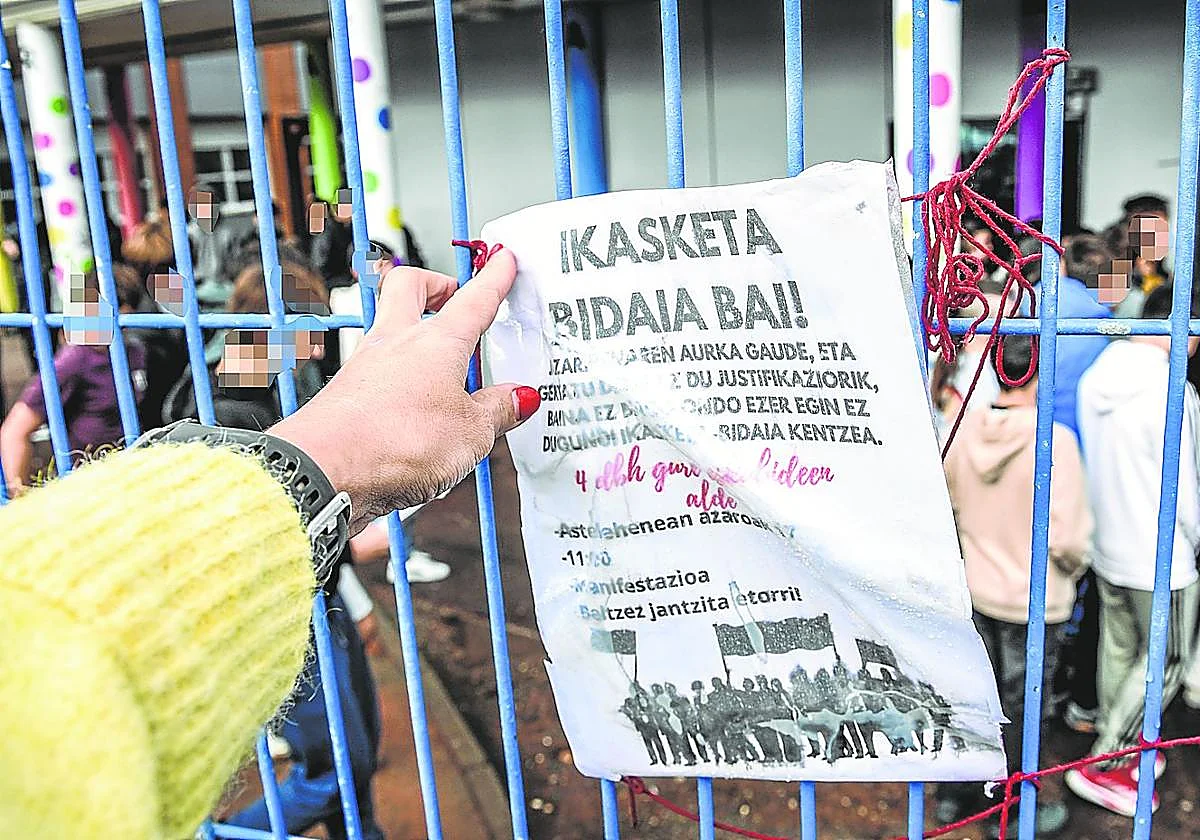 IKASKETA
BIDAIA BAI!
AURKA GAUDE, ETA
DU JUSTIFIKAZIORIK,
BAINA EZ ONDO EZER EGIN EZ
DUGUNOI BIDAIA KENTZEA.
4 dbh gure
alde
-Astelehenean
-Manifestazioa
-Beltzez jantzita etorri!